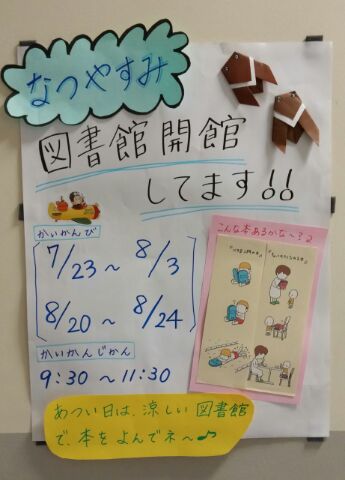 なつやすみ
図書館開館
してます!!
かいかんび
7/23~8/3
8/20~8/24
かいかんじかん
9:30~11:30
こんな本あるかな~?♪
あつい日は、涼しい図書館
で、本をよんでネ~♪